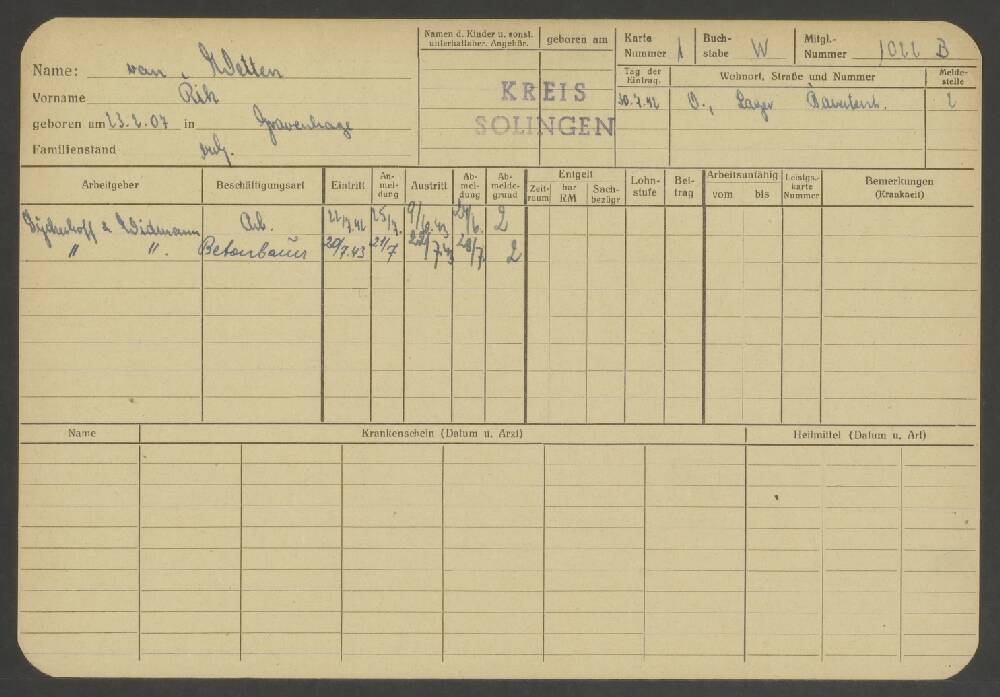 Namen d. Kinder u. sonst. unterhaltsber. Angehör.
geboren am
Karte Nummer 1
Buchstabe W
Mitgl.-Nummer 1022 B
Name: van Wetten
Vorname Rik
geboren am 23.2.07 in Gravenhage
Familienstand
KREIS
SOLINGEN
Tag der Eintrag.
Wohnort, Straße und Nummer
Meldestelle
30.7.42 O., Lager 2
Arbeitgeber
Beschäftigungsart
Eintritt
Anmeldung
Austritt
Abmeldung
Abmeldegrund
Entgelt
Zeitraum
bar RM
Sachbezüge
Lohnstufe
Beitrag
Arbeitsunfähig
vom bis
Leistgs.-karte Nummer
Bemerkungen (Krankheit)
Dyckerhoff & Widmann Arb. 22/7.42 25/7. 9/6.43 24/6. 2
" ". Betonbauer 20/7.43 21/7 22/7.43 28/7. 2
Name
Krankenschein (Datum u. Arzt)
Heilmittel (Datum u. Art)